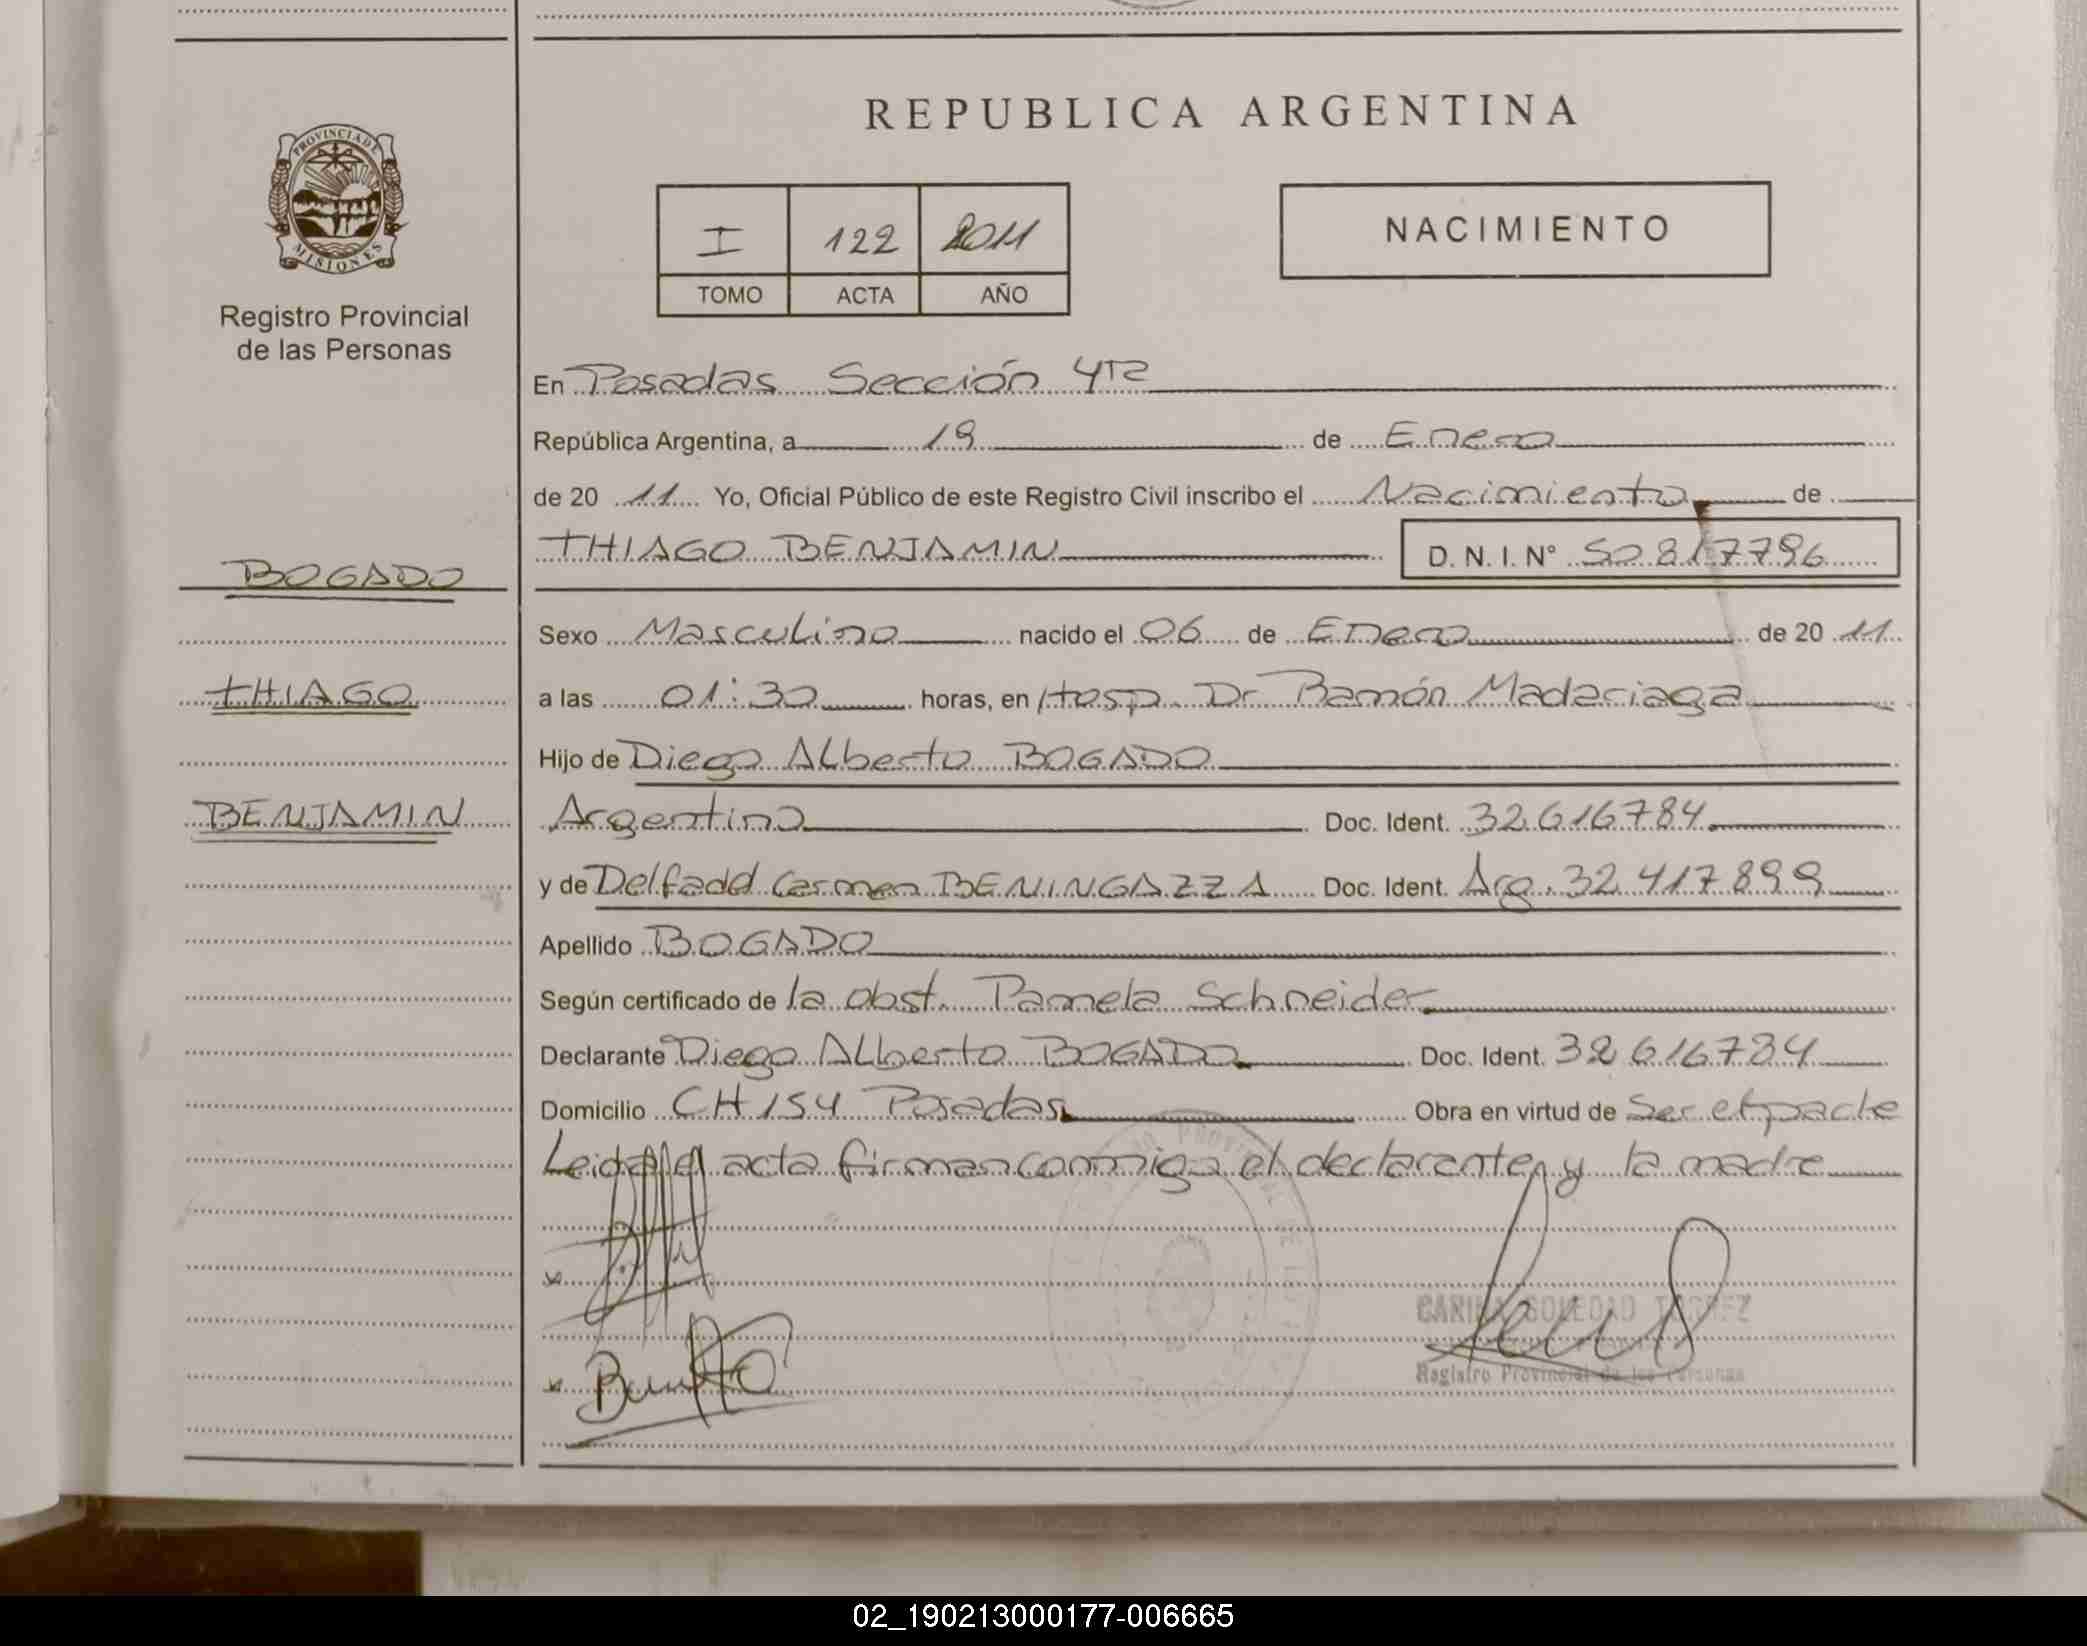 PROVINCIA DE
MISIONES
Registro Provincial
de las Personas
BOGADO
THIAGO
BENJAMIN
REPUBLICA ARGENTINA
I 122 2011
TOMO ACTA AÑO
NACIMIENTO
En Posadas Sección 4ta
República Argentina, a 19 de Enero
de 20 11 Yo, Oficial Público de este Registro Civil inscribo el Nacimiento de
THIAGO BENJAMIN D. N. I. Nº 50 817796
Sexo Masculino nacido el 06 de Enero de 20 11
a las 01:30 horas, en Hosp. Dr Ramón Madariaga
Hijo de Diego Alberto BOGADO
Argentino Doc. Ident. 32 616784
y de Delfadd Carmen BENINGAZZA Doc. Ident. Arg. 32 417899
Apellido BOGADO
Según certificado de la obst. Pamela Schneider
Declarante Diego Alberto BOGADO Doc. Ident. 32 616784
Domicilio CH 154 Posadas Obra en virtud de Ser el padre
Leida el acta firman conmigo el declarante y la madre
CARINA SOLEDAD
Registro Provincial de las Personas
02_190213000177-006665